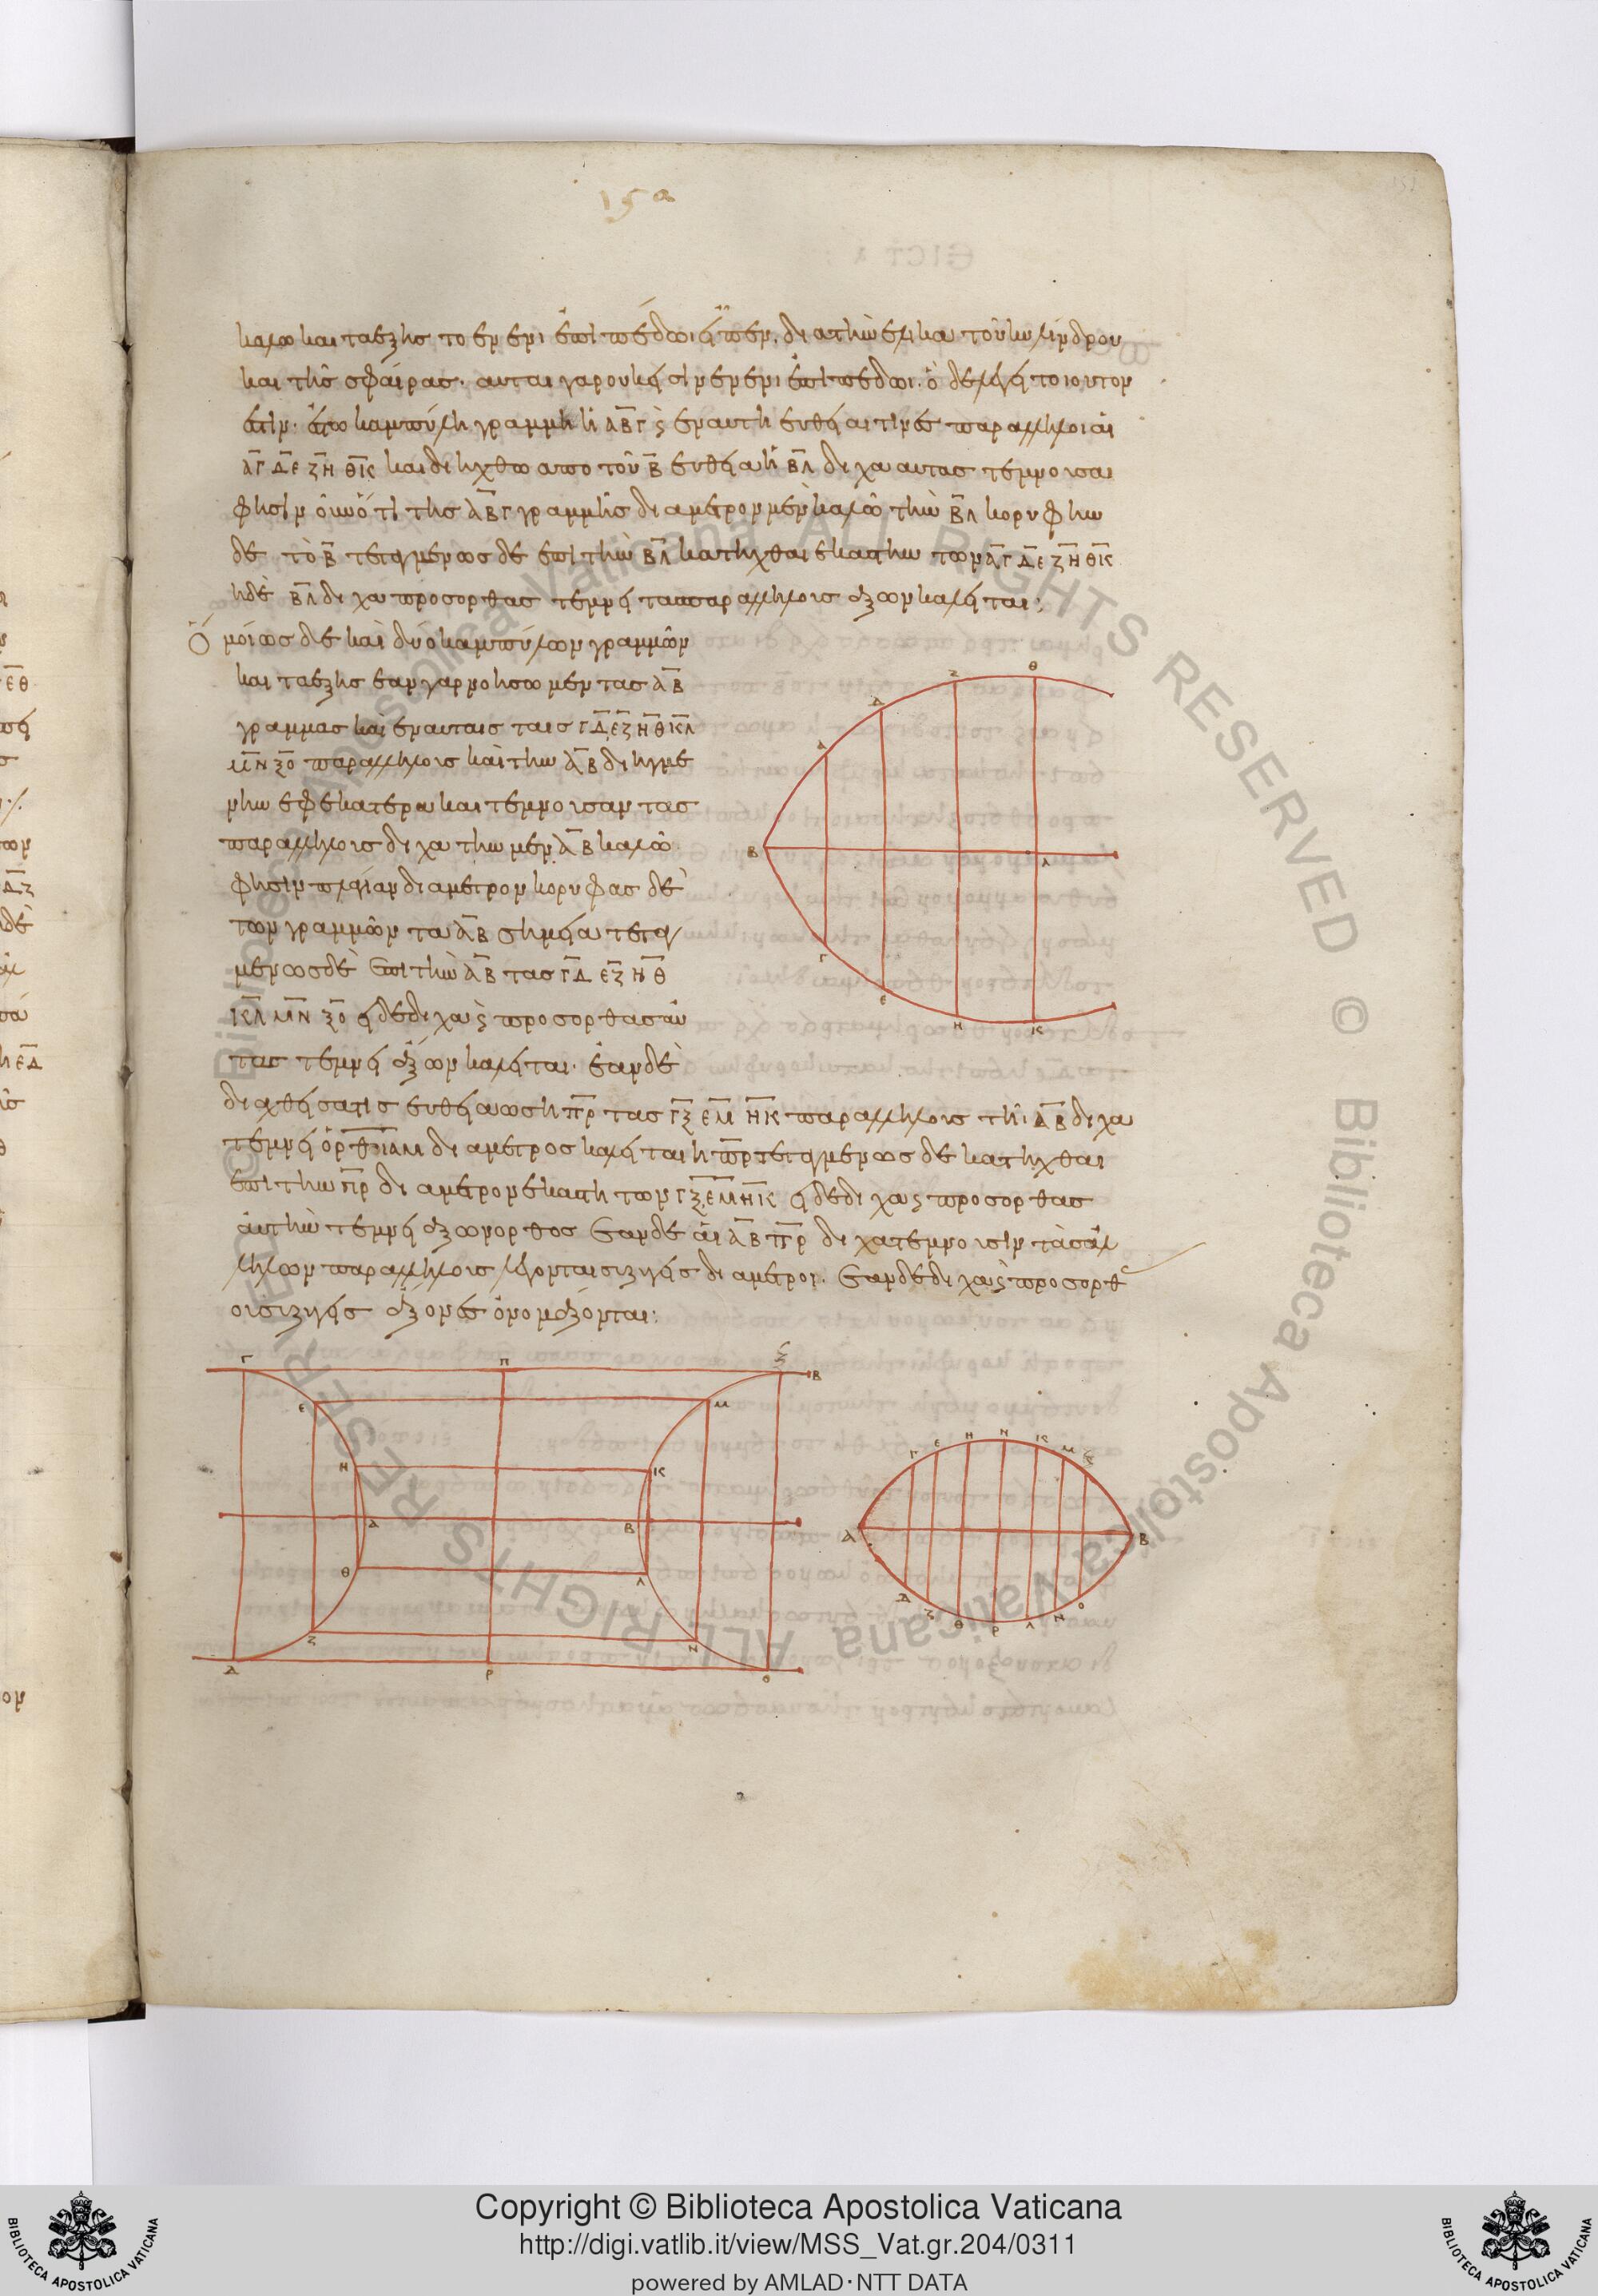 καλῶ καὶ τὰ ἑξῆς τὸ ἐν ἑνὶ ἐπιπέδωι εἶπεν διὰ τὴν ἕλικα τοῦ κυλίνδρου
καὶ τῆς σφαίρας· αὗται γὰρ οὐκ εἰσὶν ἐν ἑνὶ ἐπιπέδωι. ὃ δὲ λέγει τοιοῦτον
ἐστιν· ἔστω καμπύλη γραμμὴ ἡ ΑΒΓ καὶ ἐν αὐτῆ εὐθεῖαι τινὲς παράλληλοι αἱ
ΑΓ ΔΕ ΖΗ ΘΚ καὶ διήχθω ἀπὸ τοῦ Β εὐθεῖα ἡ ΒΛ δίχα αὐτὰς τέμνουσα
φησὶν οὖν ὅτι τῆς ΑΒΓ γραμμῆς διάμετρον μὲν καλῶ τὴν ΒΛ κορυφὴν
δὲ τὸ Β τεταγμένως δὲ ἐπὶ τὴν ΒΛ κατῆχθαι ἑκάστην τῶν ΑΓ ΔΕ ΖΗ ΘΚ
ἡ δὲ ΒΛ δίχα πρὸς ὀρθὰς τέμνει τὰς παραλλήλους ἄξων καλεῖται:
Ὁμοίως δὲ καὶ δύο καμπύλων γραμμῶν
καὶ τὰ ἑξῆς ἐὰν γὰρ νοήσωμεν τὰς ΑΒ
γραμμὰς καὶ ἐν αὐταῖς τὰς ΓΔ ΕΖ ΗΘ ΚΛ
ΜΝ ΞΟ παραλλήλους καὶ τὴν ΑΒ διηγμέ
νην ἐφ ἑκάτερα καὶ τέμνουσαν τὰς
παραλλήλους δίχα τὴν μὲν ΑΒ καλῶ
φησὶν πλαγίαν διάμετρον κορυφὰς δὲ
τῶν γραμμῶν τὰ ΑΒ σημεῖα τεταγ
μένως δὲ ἐπὶ τὴν ΑΒ τὰς ΓΔ ΕΖ ΗΘ
ΚΛ ΜΝ ΞΟ εἰ δὲ δίχα καὶ πρὸς ὀρθὰς αὐ
τὰς τέμνει ἄξων καλεῖται· ἐὰν δὲ
διαχθεῖσα τις εὐθεῖα ὡς ἡ ΠΡ τὰς ΓΞ ΕΜ ΗΚ παραλλήλους τῆι ΑΒ δίχα
τέμνει ὀρθία διάμετρος καλεῖται ἡ ΠΡ τεταγμένως δὲ κατῆχθαι
ἐπὶ τὴν ΠΡ διάμετρον ἑκάστη τῶν ΓΞ ΕΜ ΗΚ εἰ δὲ δίχα καὶ πρὸς ὀρθὰς
αὐτὴν τέμνει ἄξων ὀρθὸς ἐὰν δὲ αἱ ΑΒ ΠΡ δίχα τέμνουσιν τὰς ἀλ
λήλων παραλλήλους λέγονται συζυγεῖς διάμετροι. ἐὰν δὲ δίχα καὶ πρὸς ὀρθ
οι συζυγεῖς ἄξονες ὀνομάζονται:
Θ
Ζ
Δ
Α
Β
Λ
Γ
Ε
Η
Κ
Γ Π Ξ Β
Ε Μ
Η Κ
Α Β
Θ Λ
Ζ Ν
Δ Ρ Ο
Γ Ε Η Ν Κ Μ Ξ
Α Β
Δ Ζ Θ Ρ Λ Ν Ο
© Biblioteca Apostolica Vaticana ALL RIGHTS RESERVED © Biblioteca Apostolica Vaticana ALL RIGHTS RESERVED
Copyright © Biblioteca Apostolica Vaticana
http://digi.vatlib.it/view/MSS_Vat.gr.204/0311
powered by AMLAD·NTT DATA
BIBLIOTECA APOSTOLICA VATICANA
BIBLIOTECA APOSTOLICA VATICANA